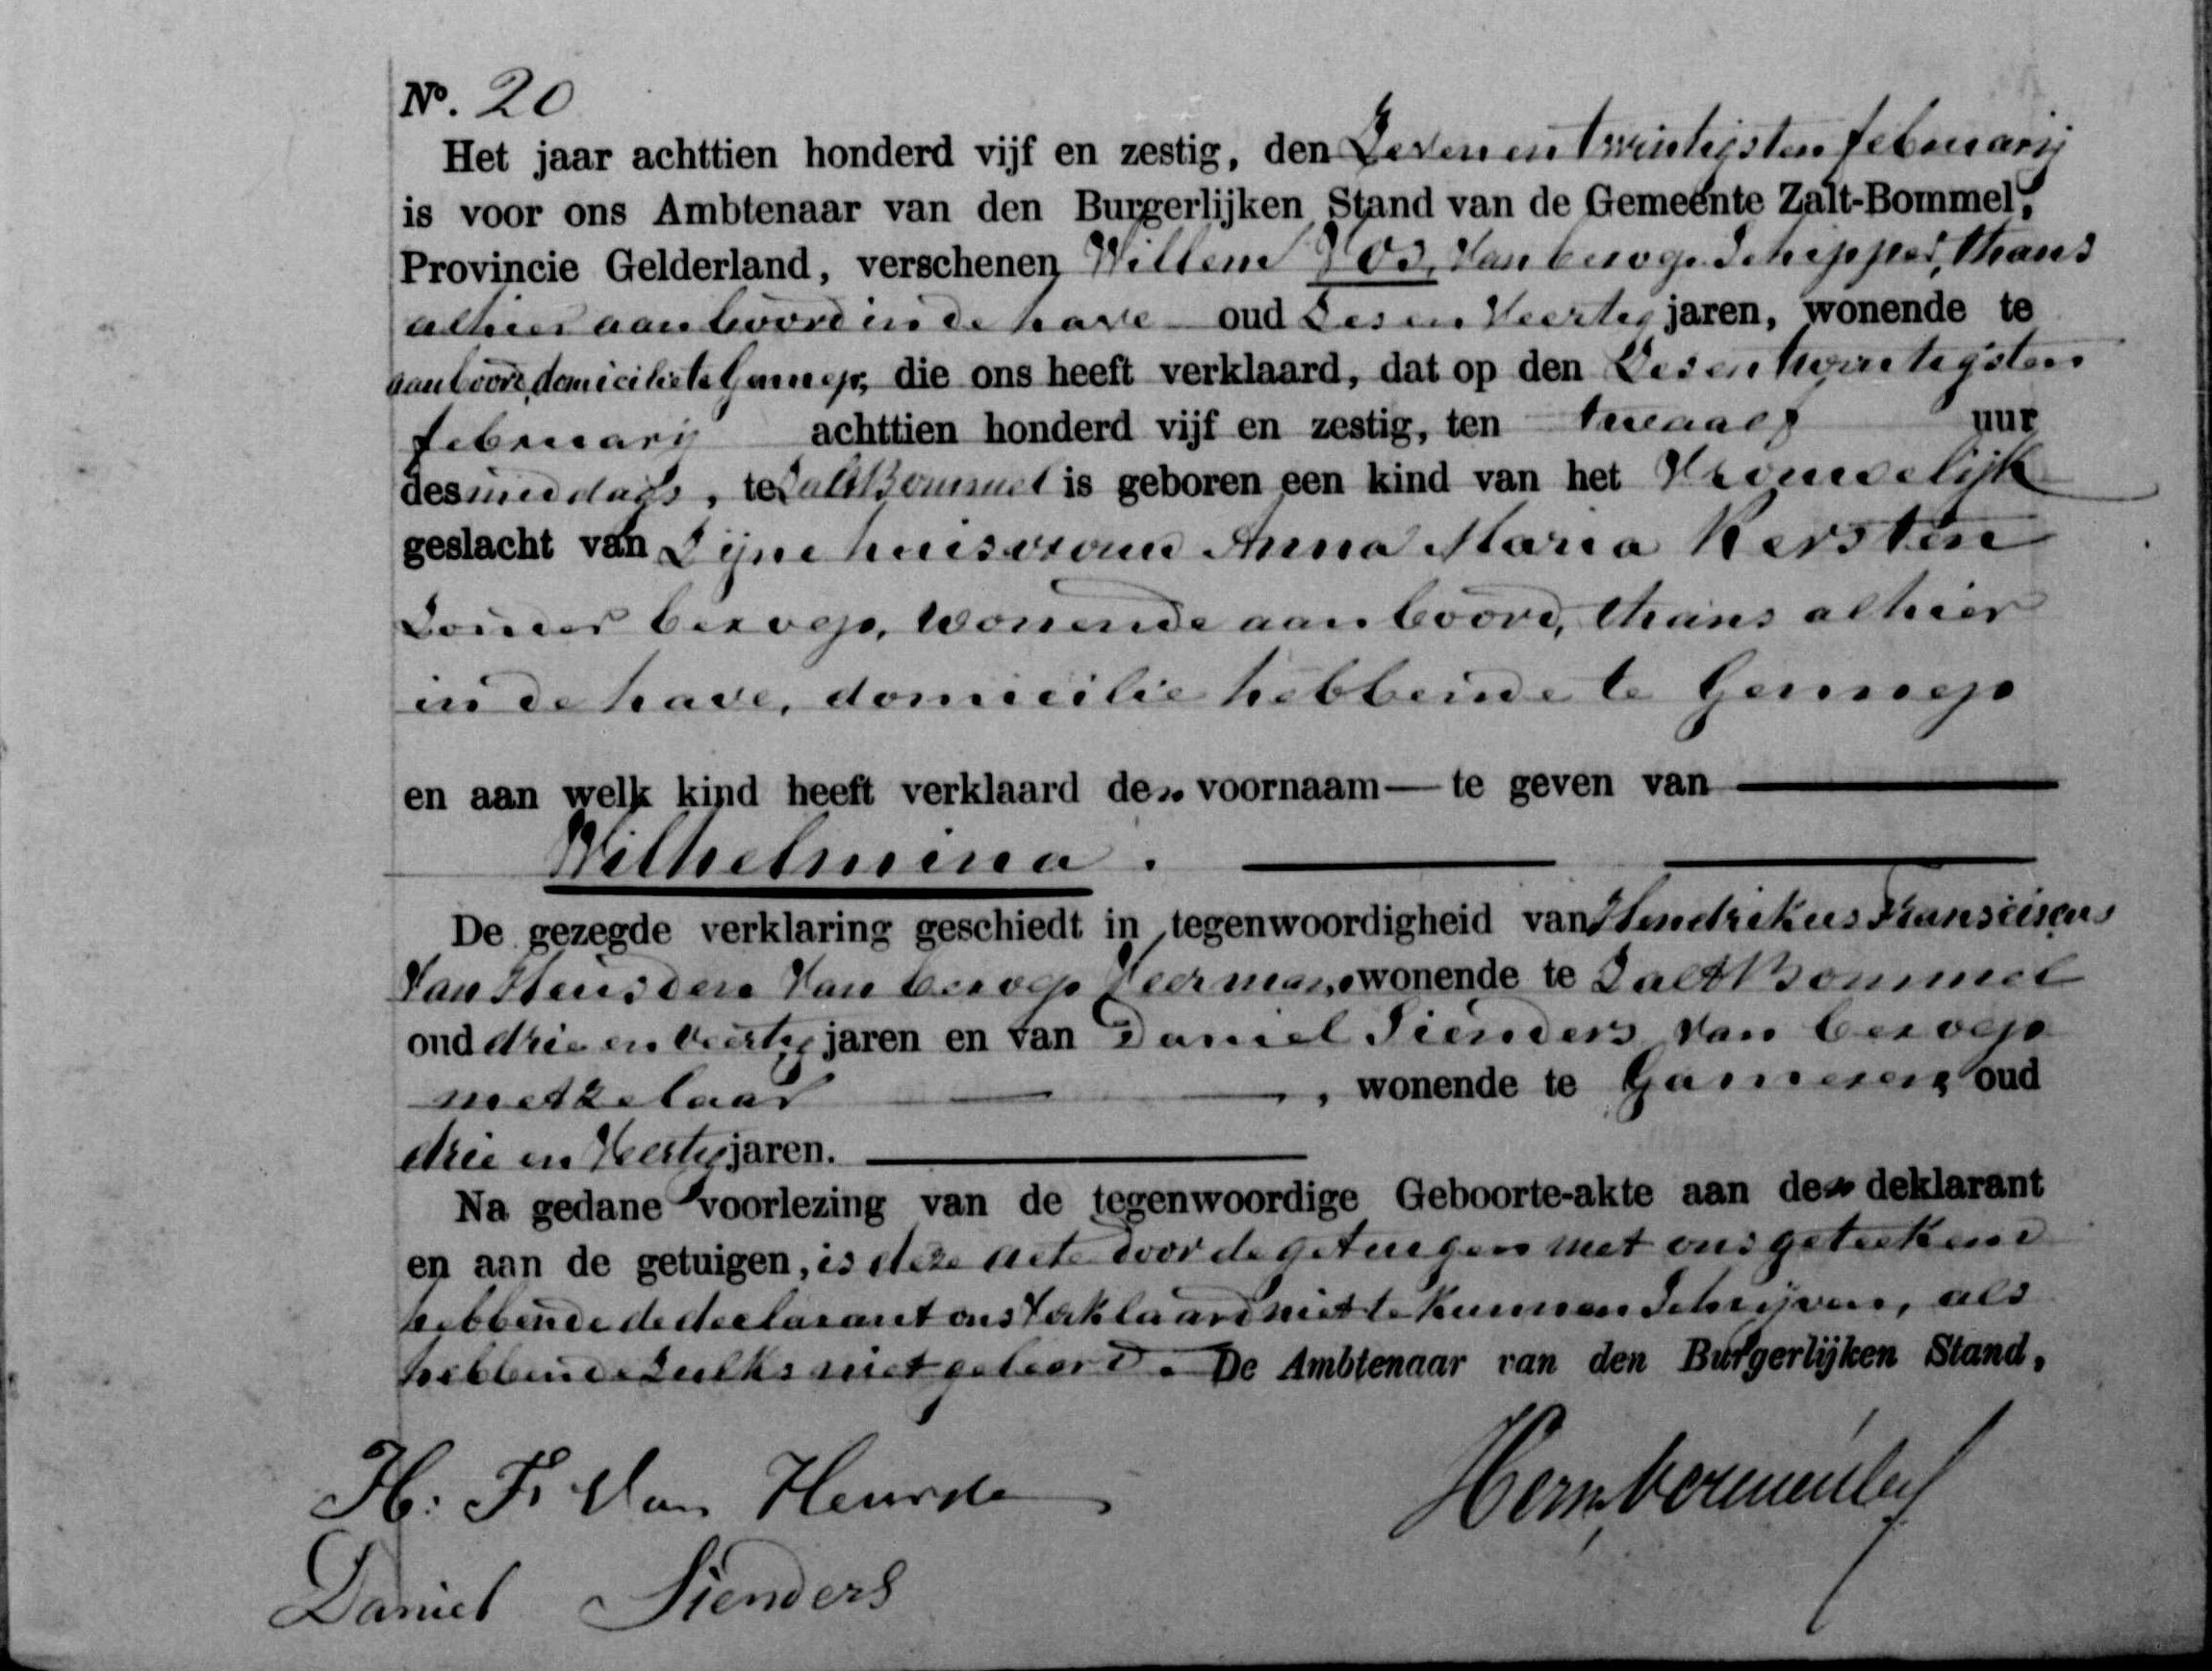 No. 20
Het jaar achttien honderd vijf en zestig, den Zeven en twintigsten februarij
is voor ons Ambtenaar van den Burgerlijken Stand van de Gemeente Zalt-Bommel,
Provincie Gelderland, verschenen Willem Vos, van beroep Schipper, thans
alhier aan boord in de have oud Zes en Veertig jaren, wonende te
aan boord, domicilie te Gennep, die ons heeft verklaard, dat op den Zesentwintigsten
februarij achttien honderd vijf en zestig, ten twaalf uur
des middags, te ZaltBommel is geboren een kind van het Vrouwelijk
geslacht van Zijne huisvrouw Anna Maria Kersten
Zonder beroep, wonende aan boord, thans alhier
in de have, domicilie hebbende te Gennep
en aan welk kind heeft verklaard den voornaam — te geven van
Wilhelmina.
De gezegde verklaring geschiedt in tegenwoordigheid van Hendrikus Fransciscus
Van Heusden van beroep Veerman, wonende te ZaltBommel
oud drie en veertig jaren en van Daniel Sienders van beroep
metzelaar, wonende te Gameren, oud
drie en Veertig jaren.
Na gedane voorlezing van de tegenwoordige Geboorte-akte aan den deklarant
en aan de getuigen, is deze acte door de getuigen met ons geteekend
hebbende de declarant ons verklaard niet te kunnen Schrijven, als
hebbende Zulks niet geleerd. De Ambtenaar van den Burgerlijken Stand,
H. F. Van Heusde
Daniel Sienders